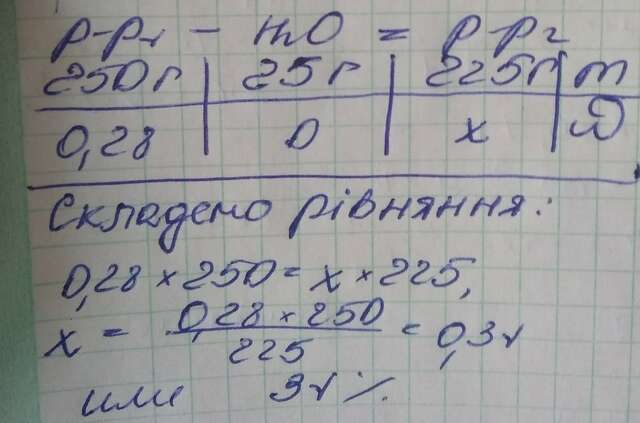 р-р₁ − H₂O = р-р₂
250г 25г 225г m
0,28 0 x ω
Складемо рівняння:
0,28 × 250 = x × 225,
x = 0,28 × 250 / 225 = 0,31
или 31%.